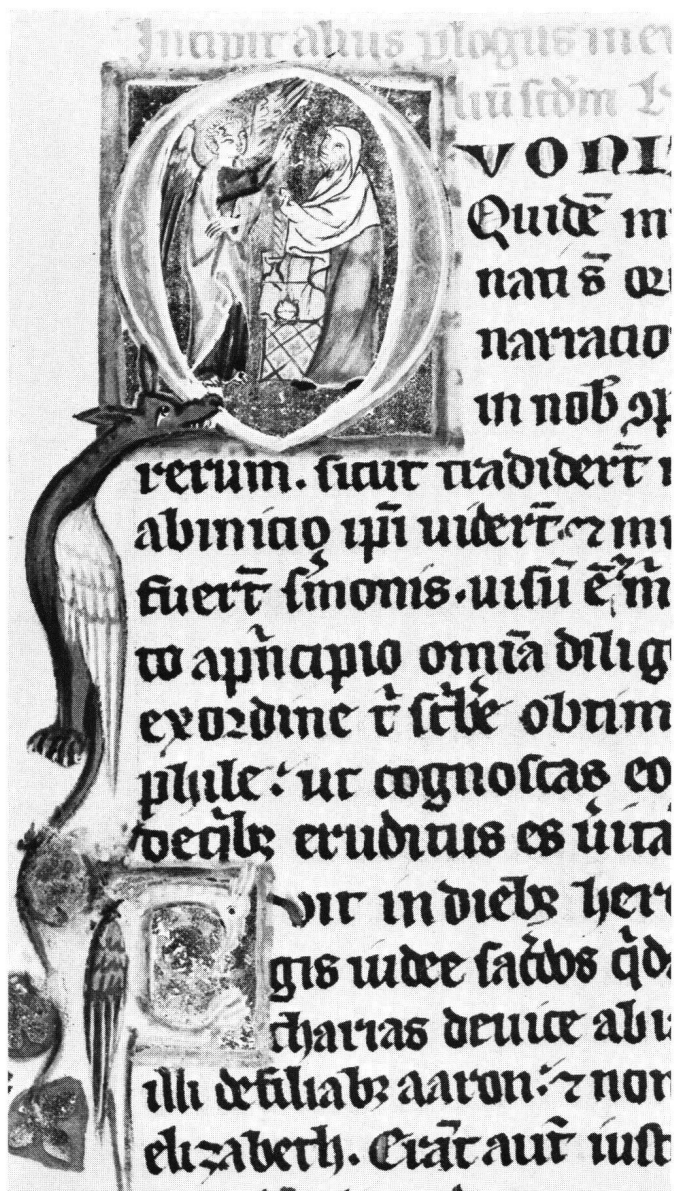 Incipit alius ꝓlogus in eu
liū scd̄m
VONI
Quidē m
nati s̄ or
narratio
in nob̄ ꝯp
rerum. sicut tradidert̄
abinicio ip̄i uidert̄. ⁊ mi
fuert̄ sm̄onis. uisū ē m̄
to apn̄cipio omīa dilig
exordine t̄ sc̄be obtim
phile: ut cognoscas eo
de quibꝫ eruditus es uita
vit in diebꝫ her
gis iudee sac̄dos qda
charias deuice abi
illi defiliabꝫ aaron: ⁊ non
elizabeth. Erāt aut̄ iust